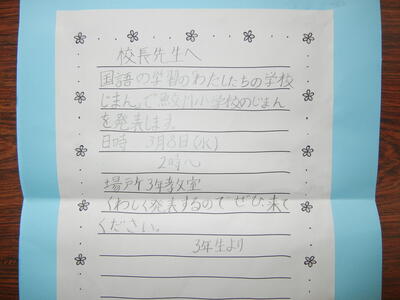 校長先生へ
国語の学習の「わたしたちの学校
じまん」で鮫川小学校のじまん
を発表します。
日時 3月8日(水)
2時〜
場所 3年教室
くわしく発表するのでぜひ来て
ください。
3年生より